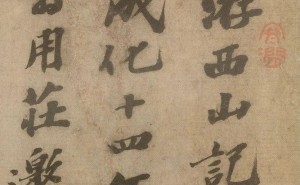 游西山記
成化十四年
用莊邀